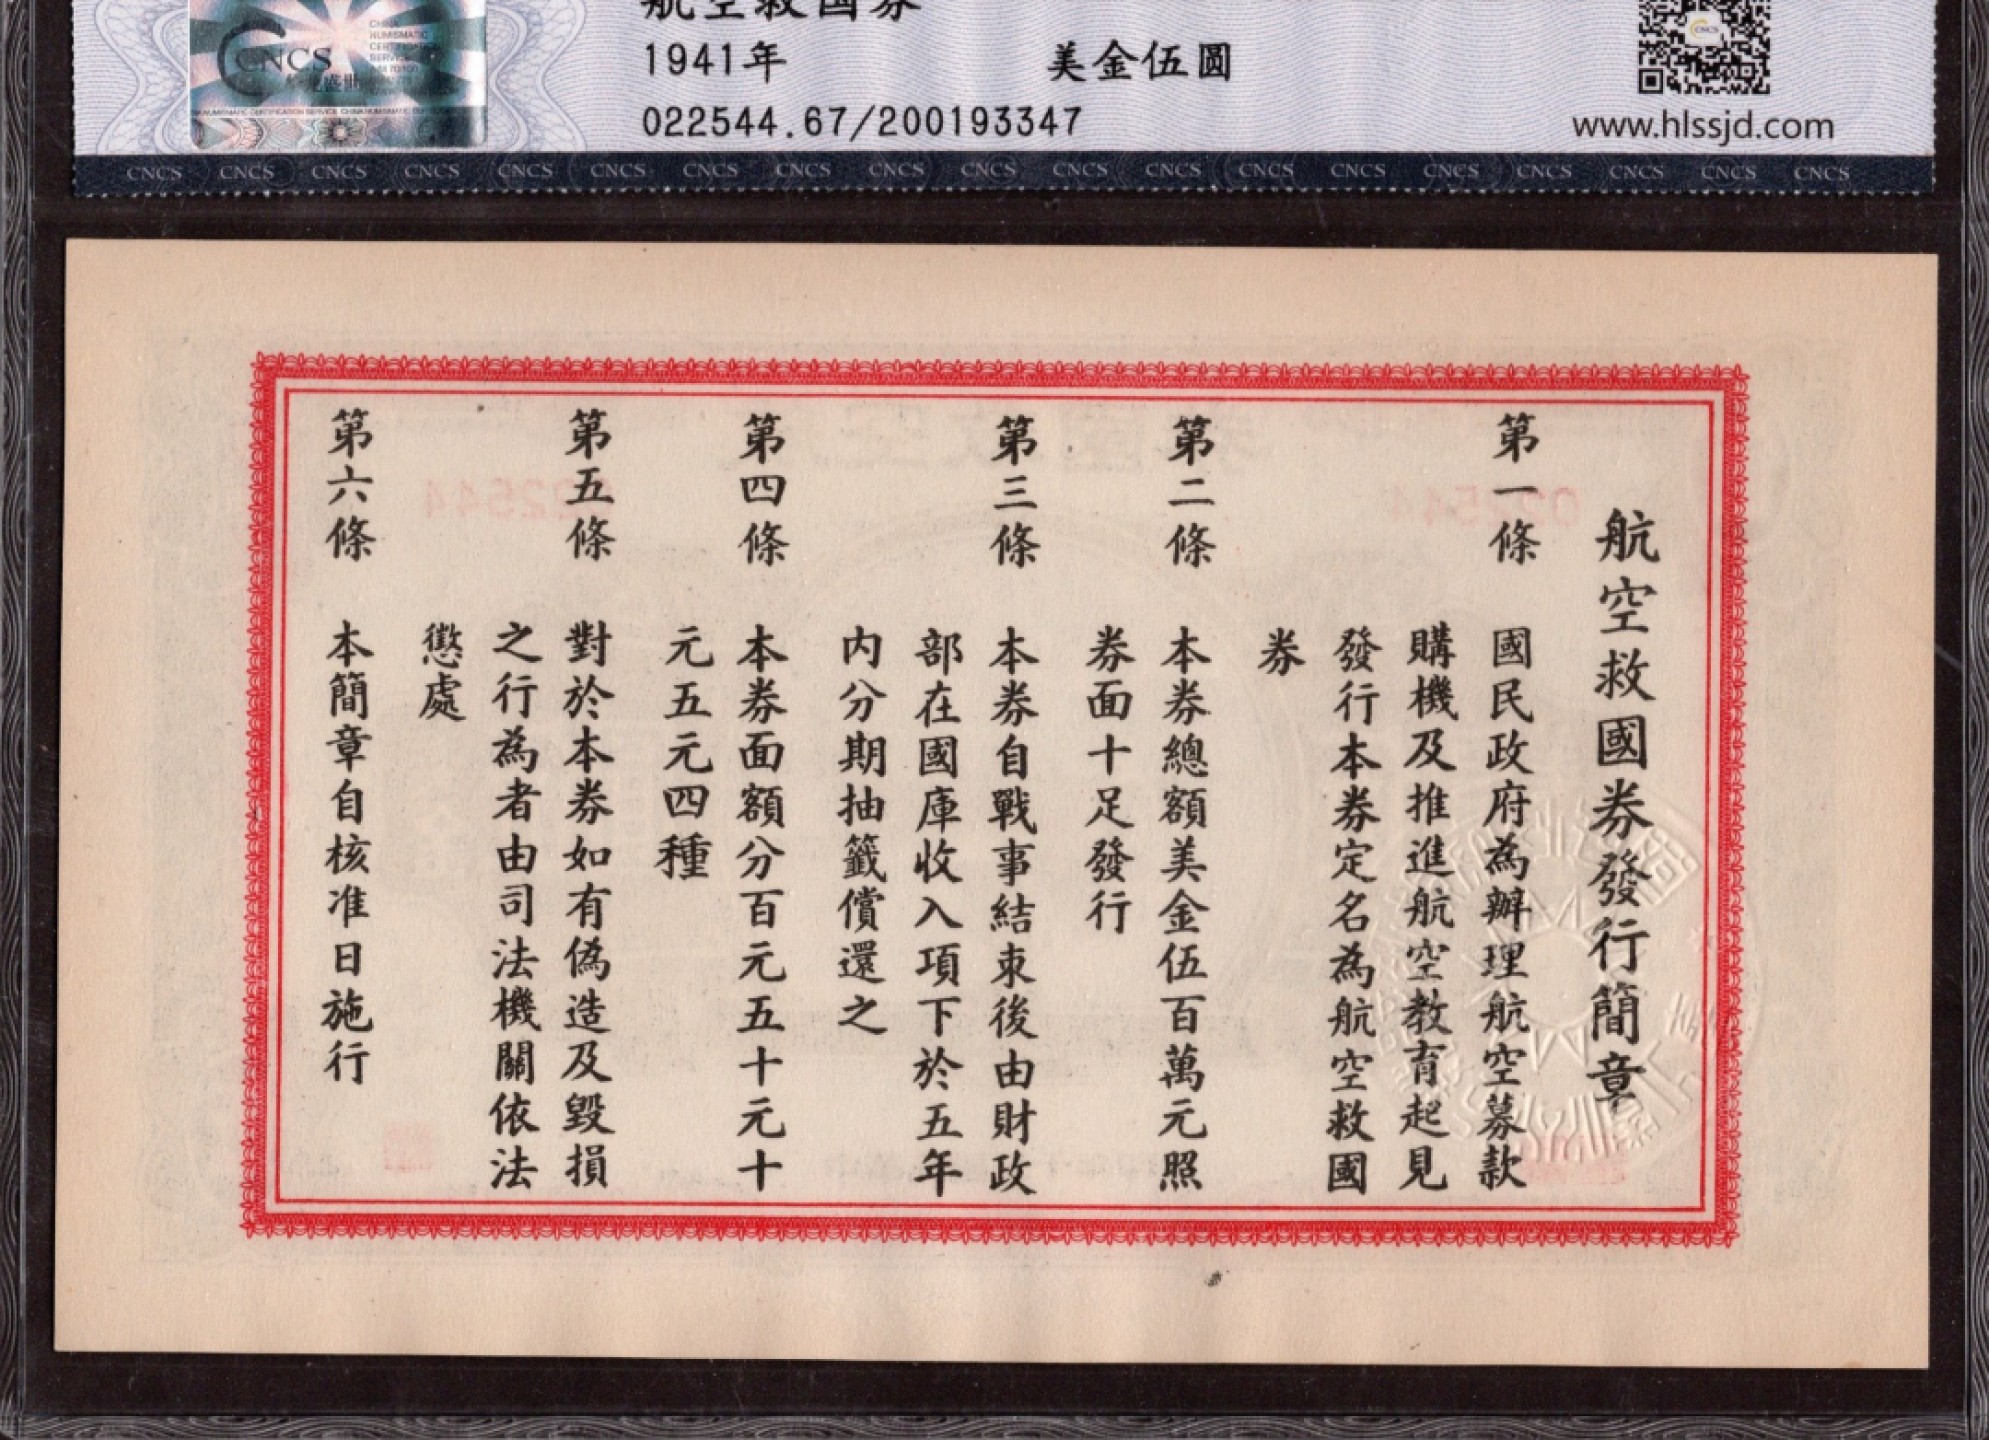 航空救国券
1941年 美金伍圆
022544.67/200193347
www.hlssjd.com
CNCS
CHINA
NUMISMATIC
CERTIFICATION
SERVICE
CNCS CNCS CNCS CNCS CNCS CNCS CNCS CNCS CNCS CNCS CNCS CNCS CNCS CNCS CNCS CNCS CNCS CNCS CNCS
航空救國券發行簡章
第一條 國民政府為辦理航空募款
購機及推進航空教育起見
發行本券定名為航空救國
券
第二條 本券總額美金伍百萬元照
券面十足發行
第三條 本券自戰事結束後由財政
部在國庫收入項下於五年
内分期抽籤償還之
第四條 本券面額分百元五十元十
元五元四種
第五條 對於本券如有偽造及毀損
之行為者由司法機關依法
懲處
第六條 本簡章自核准日施行